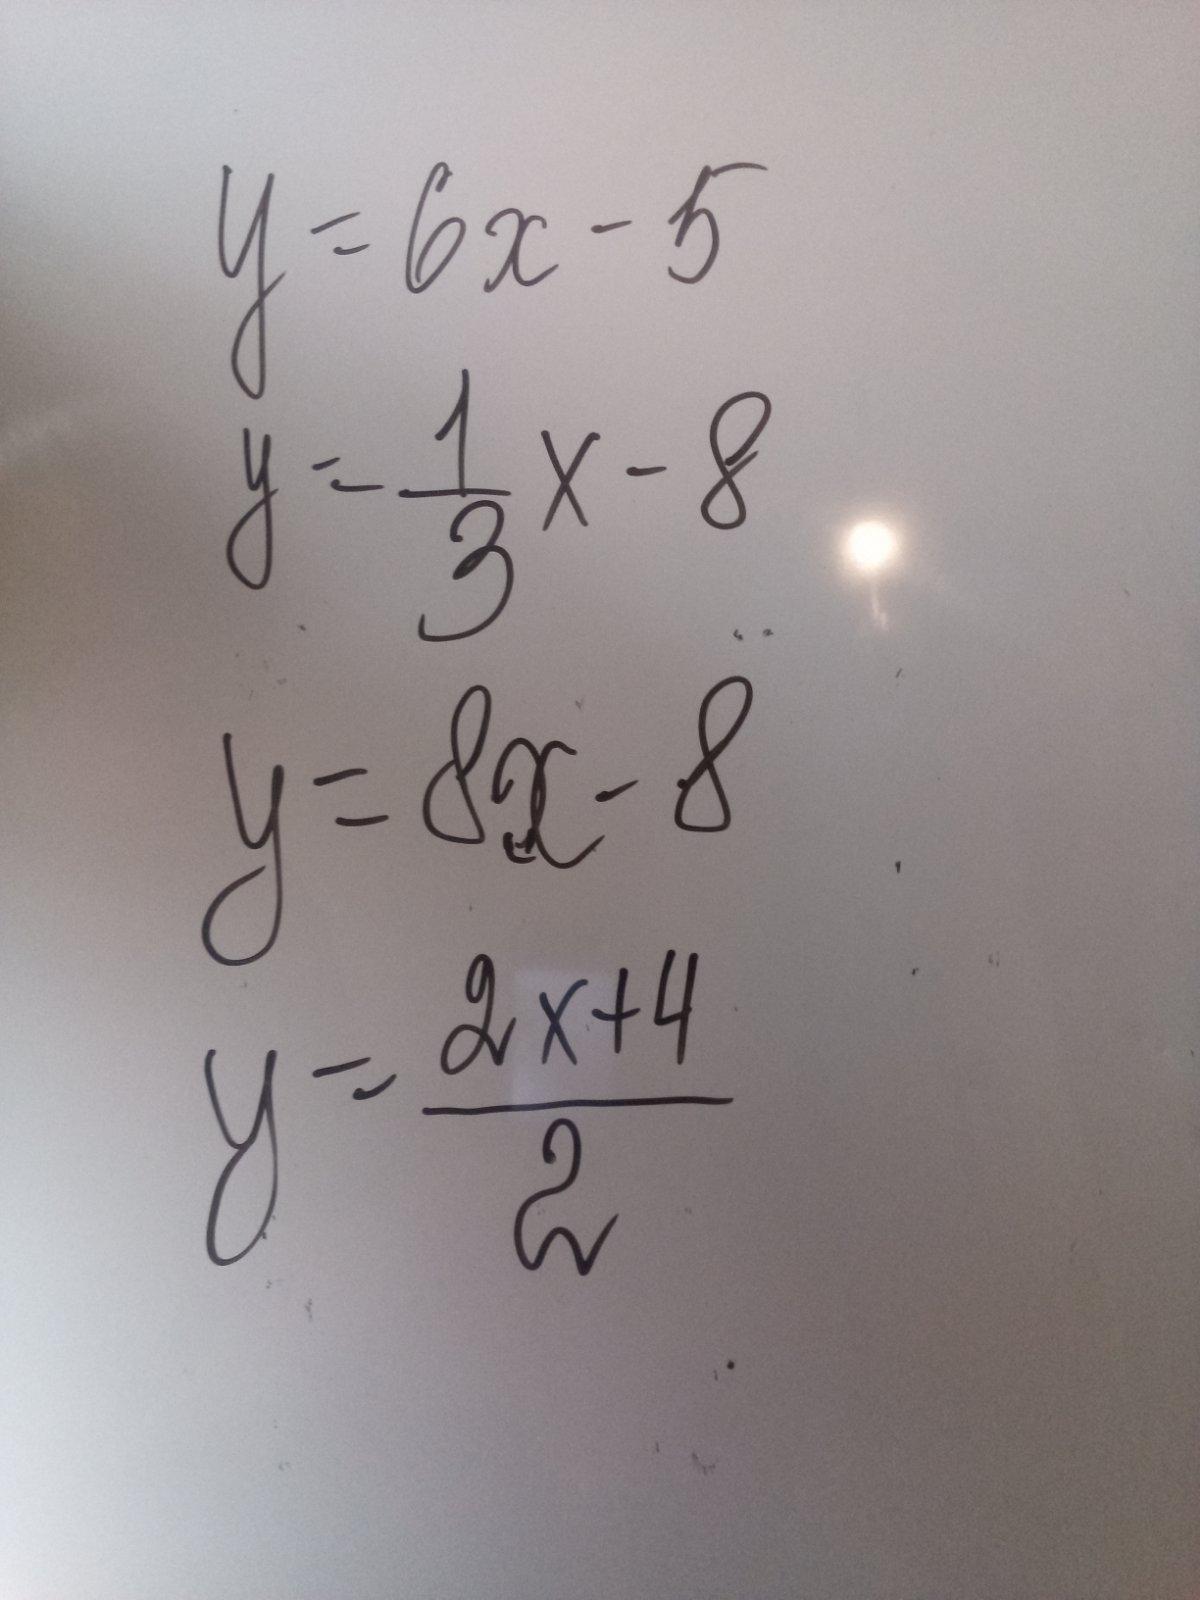 y = 6x - 5
y = \frac{1}{3}x - 8
y = 8x - 8
y = \frac{2x+4}{2}